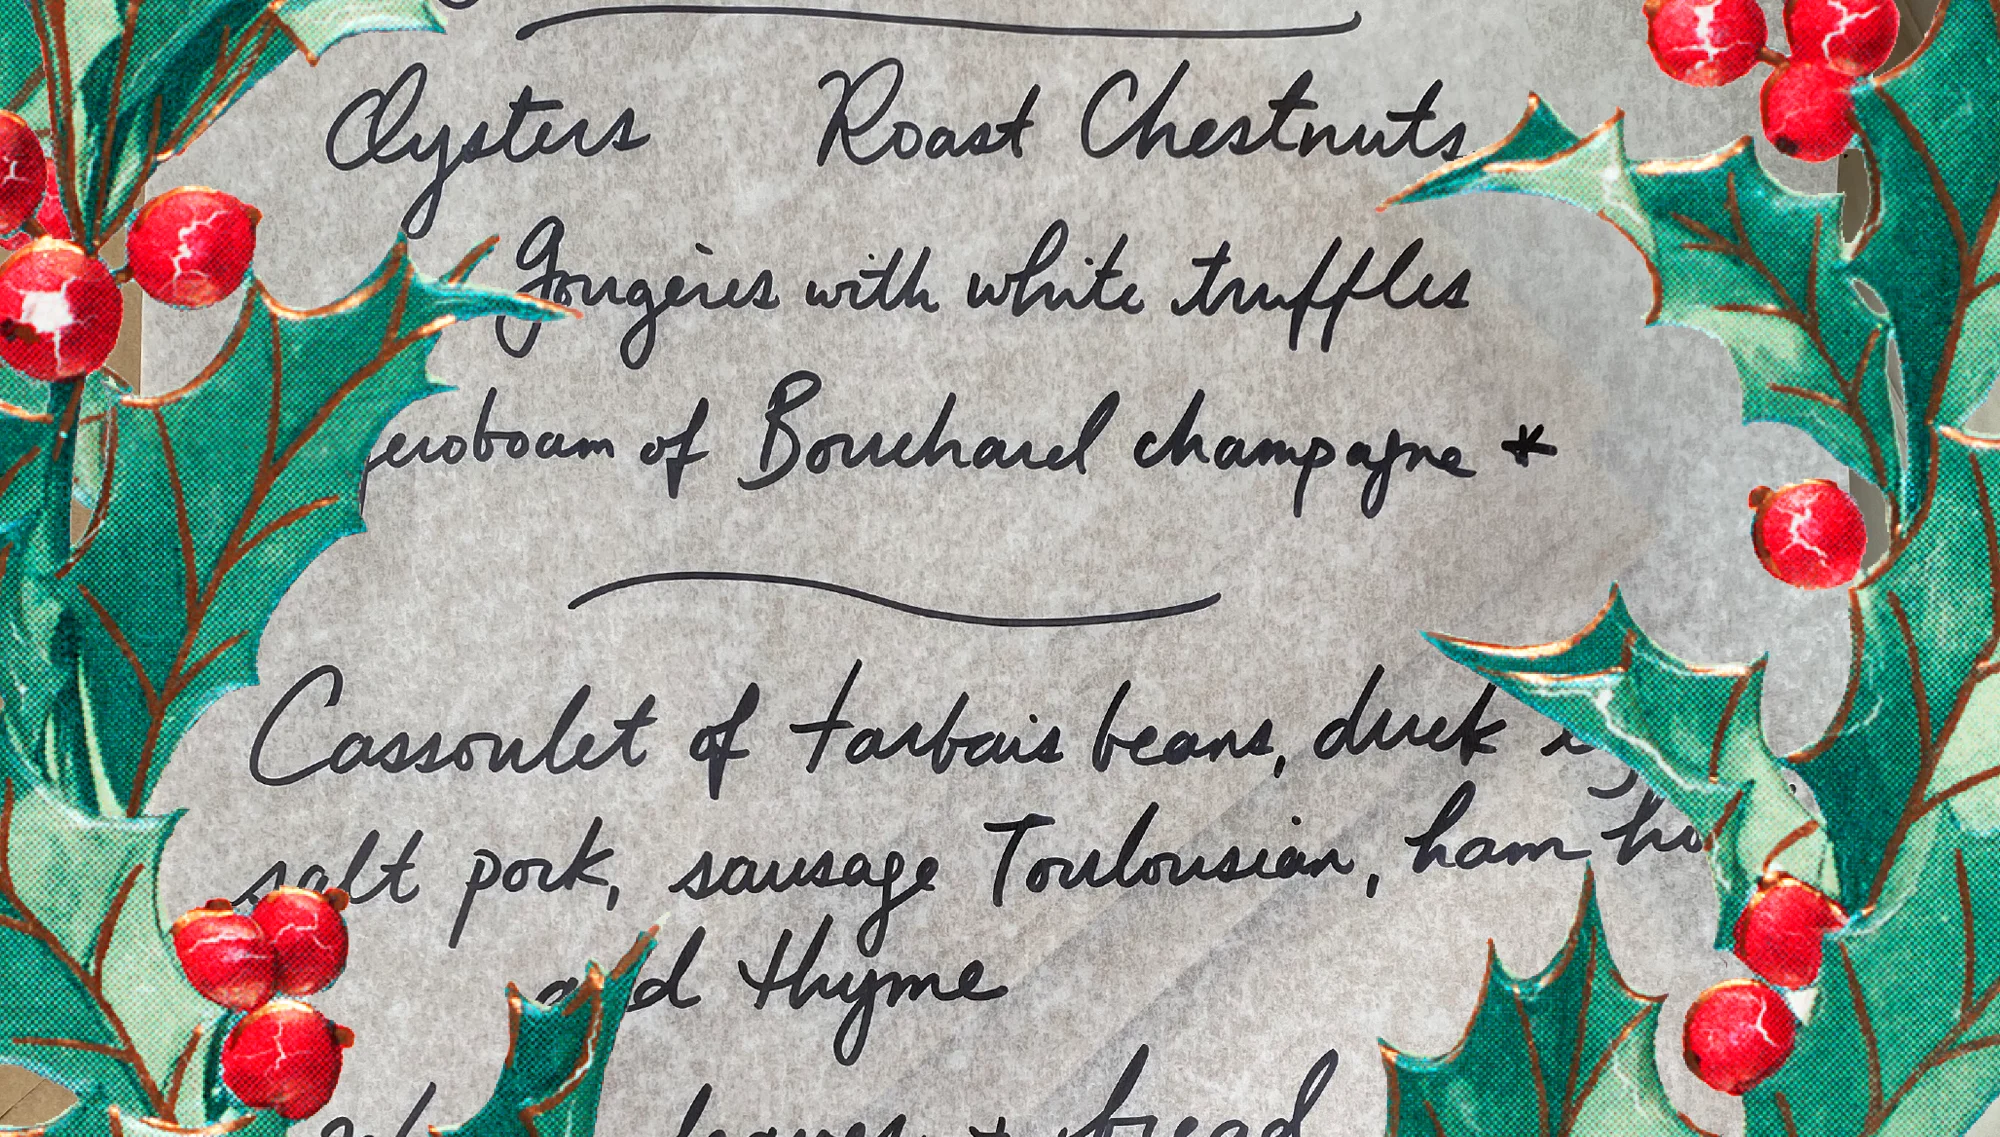 Oysters Roast Chestnuts
Gougères with white truffles
eroboam of Bouchard champagne *
Cassoulet of tarbais beans, duck
salt pork, sausage Toulousian, ham
and thyme
leaves + bread